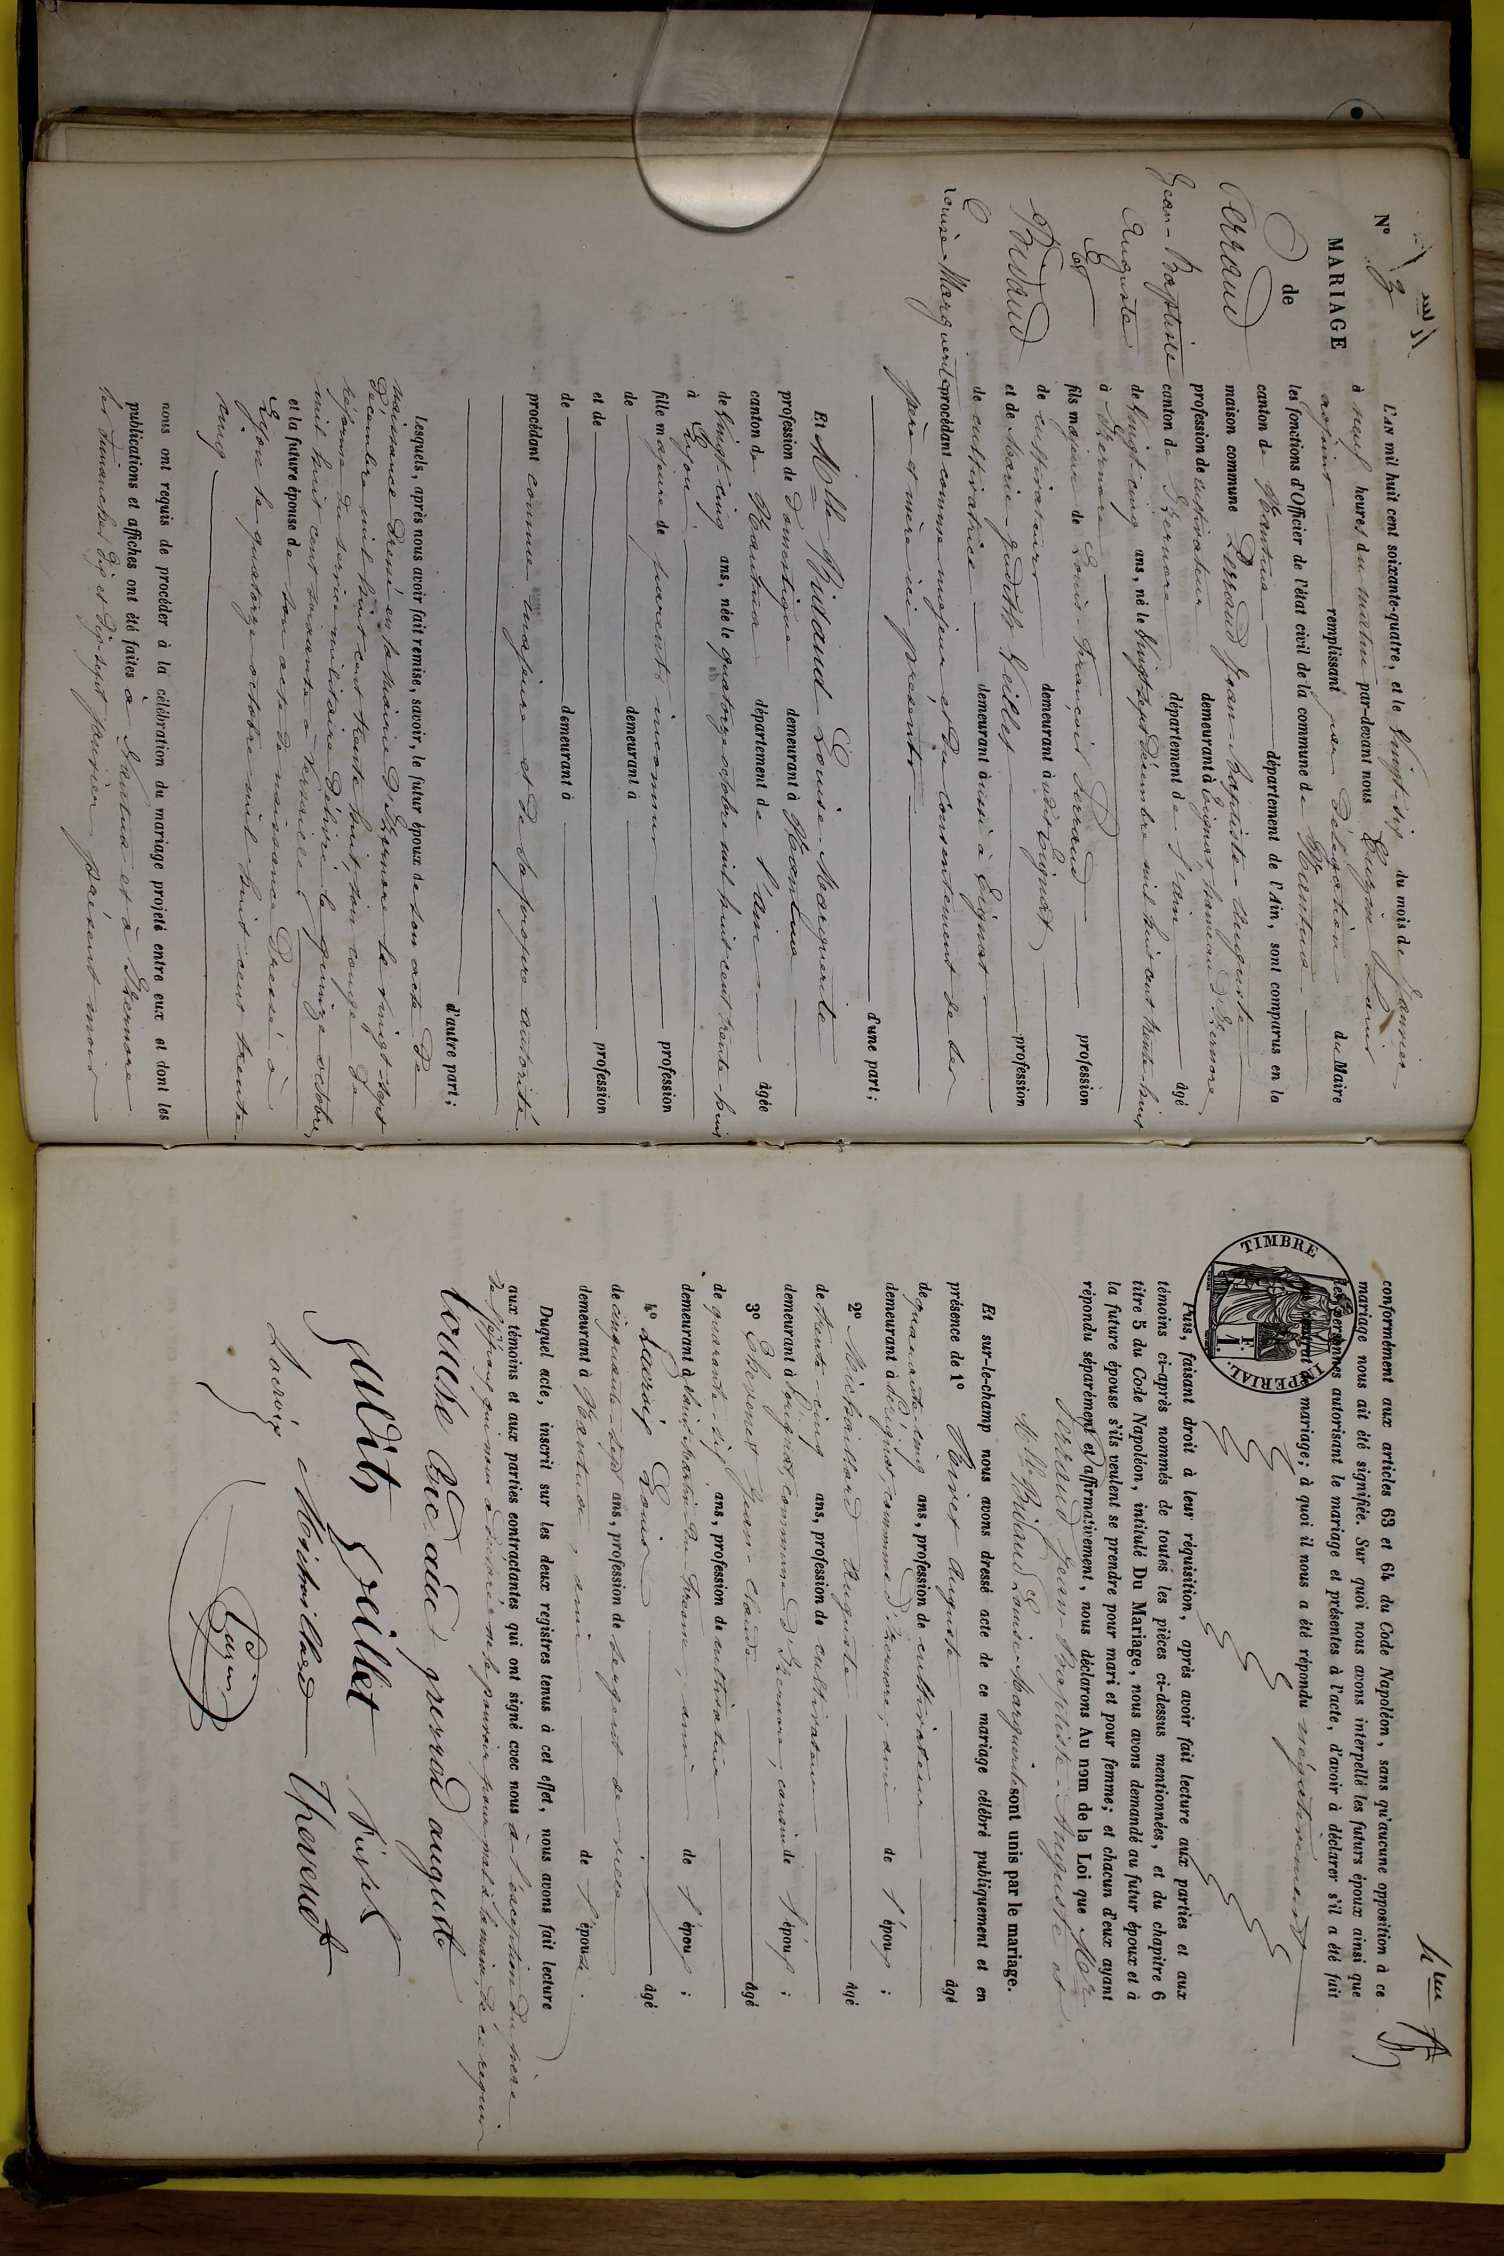 N° 3
MARIAGE
de
Perraud
Jean-Baptiste
Auguste
Et
Bidaud
Louise-Marguerite
L'AN mil huit cent soixante-quatre, et le Vingt-six du mois de Janvier
à neuf heures du matin par-devant nous
adjoint remplissant par délégation du Maire
les fonctions d'Officier de l'état civil de la commune de Nantua
canton de Nantua département de l'Ain, sont comparus en la
maison commune Perraud Jean-Baptiste-Auguste
profession de cultivateur demeurant à hameau d'Izernore
canton de Izernore département de l'Ain âgé
de Vingt cinq ans, né le Vingt sept Décembre mil huit cent trente-huit
à Izernore
fils majeur de Louis-François Perraud profession
de cultivateur demeurant à
et de Marie-Judith Geillet profession
de cultivatrice demeurant aussi à
procédant comme majeur et du consentement de ses
père et mère ici présents
d'une part;
Et Mlle Bidaud Louise-Marguerite
profession de domestique demeurant à Nantua
canton de Nantua département de l'Ain âgée
de Vingt-cinq ans, née le quatorze octobre mil huit cent trente-huit
à Lyon
fille majeure de parents inconnus profession
de demeurant à
et de profession
de demeurant à
procédant comme majeure et de sa propre autorité
d'autre part;
Lesquels, après nous avoir fait remise, savoir, le futur époux de son acte de
naissance dressé en la mairie d'Izernore le vingt-sept
Décembre mil huit cent trente huit, son congé de
réforme du service militaire délivré le quinze octobre
mil huit cent soixante à Versailles
et la future épouse de son acte de naissance dressé à
Lyon le quatorze octobre mil huit cent trente-
nous ont requis de procéder à la célébration du mariage projeté entre eux et dont les
publications et affiches ont été faites à Nantua et à Izernore
les dimanches dix et dix-sept janvier présent mois
conformément aux articles 63 et 64 du Code Napoléon, sans qu'aucune opposition à ce
mariage nous ait été signifiée. Sur quoi nous avons interpellé les futurs époux ainsi que
les personnes autorisant le mariage et présentes à l'acte, d'avoir à déclarer s'il a été fait
contrat de mariage; à quoi il nous a été répondu négativement
TIMBRE IMPERIAL
1 F.
Puis, faisant droit à leur réquisition, après avoir fait lecture aux parties et aux
témoins ci-après nommés de toutes les pièces ci-dessus mentionnées, et du chapitre 6
titre 5 du Code Napoléon, intitulé Du Mariage, nous avons demandé au futur époux et à
la future épouse s'ils veulent se prendre pour mari et pour femme; et chacun d'eux ayant
répondu séparément et affirmativement, nous déclarons Au nom de la Loi que Mr
Perraud Jean-Baptiste-Auguste et
Mlle Bidaud Louise-Marguerite sont unis par le mariage.
Et sur-le-champ nous avons dressé acte de ce mariage célébré publiquement et en
présence de 1° Auguste âgé
de quarante cinq ans, profession de cultivateur
demeurant à commune d'Izernore, ami de l'époux;
2° Michaillard Auguste âgé
de trente-cinq ans, profession de cultivateur
demeurant à commune d'Izernore, cousin de l'époux;
3° Thevenet Jean-Claude âgé
de quarante-six ans, profession de cultivateur
demeurant à ami de l'époux;
4° Louis âgé
de cinquante-sept ans, profession de sergent de ville
demeurant à Nantua, ami de l'épouse.
Duquel acte, inscrit sur les deux registres tenus à cet effet, nous avons fait lecture
aux témoins et aux parties contractantes qui ont signé avec nous à l'exception du père
de l'époux qui nous a déclaré ne le pouvoir pour mal à la main, de ce requis
Louise perraud auguste
Judith geillet
Michaillard Thevenet
Lacroix